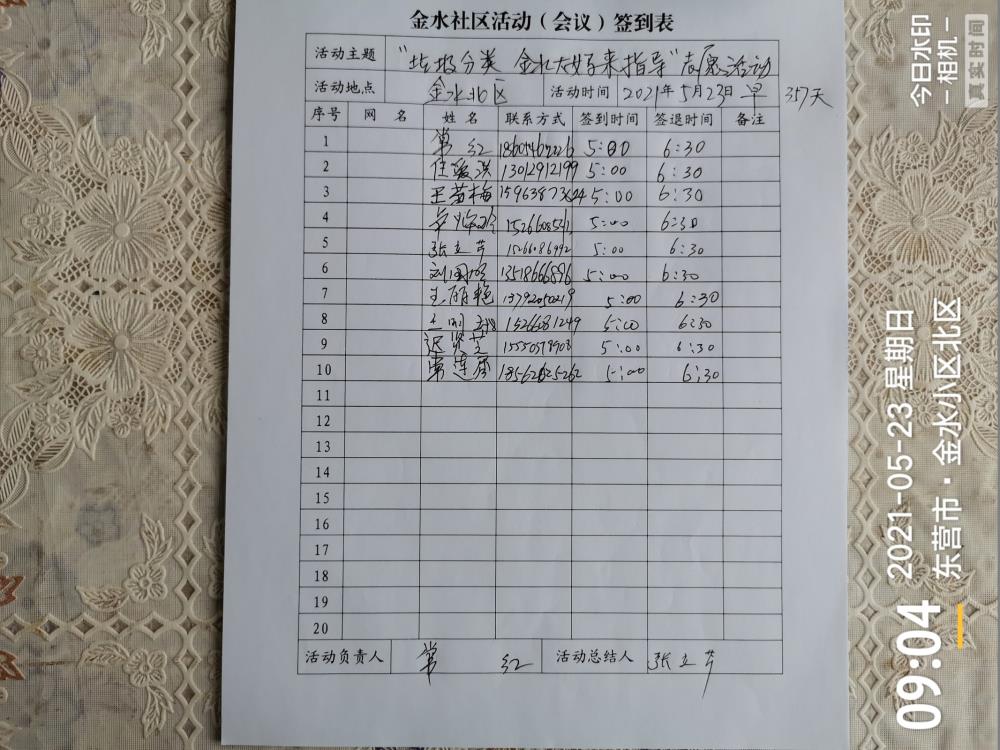 金水社区活动（会议）签到表
活动主题 "垃圾分类 金水大嫂来指导"志愿活动
活动地点 金水北区 活动时间 2021年5月23日 早 357天
序号 网 名 姓 名 联系方式 签到时间 签退时间 备注
1 常 红 5:00 6:30
2 13012912199 5:00 6:30
3 王苗梅 5:00 6:30
4 5:00 6:30
5 张立芹 15266086992 5:00 6:30
6 13518666896 5:00 6:30
7 王丽艳 13792050219 5:00 6:30
8 1526681249 5:00 6:30
9 迟贤芝 5:00 6:30
10 常莲 5:00 6:30
11
12
13
14
15
16
17
18
19
20
活动负责人 常 红 活动总结人 张立芹
今日水印
相机
真实时间
09:04
2021-05-23 星期日
东营市·金水小区北区